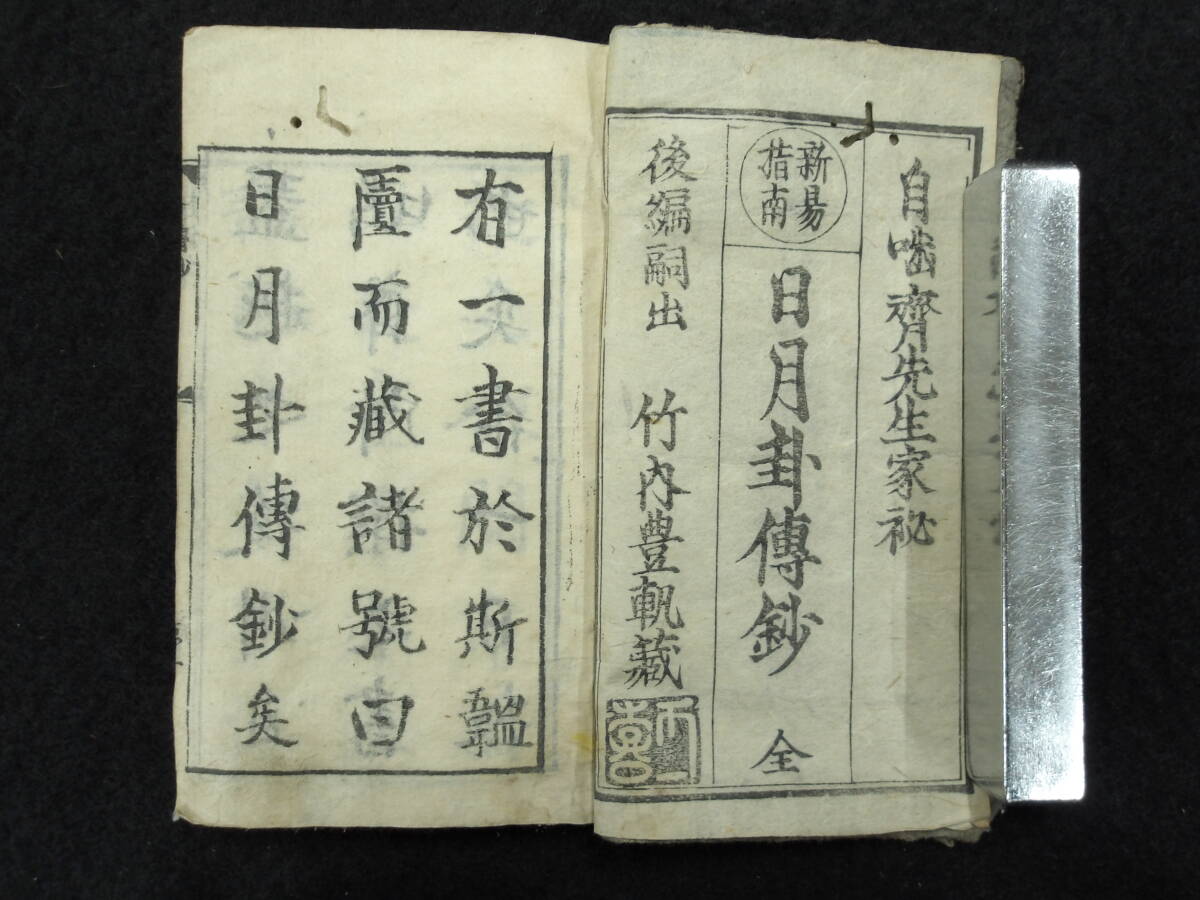 自啮齊先生家祕
新易
指南
日月卦傳鈔 全
後編嗣出 竹内豊軌藏
右一書於斯韞
匵而藏諸號曰
日月卦傳鈔矣